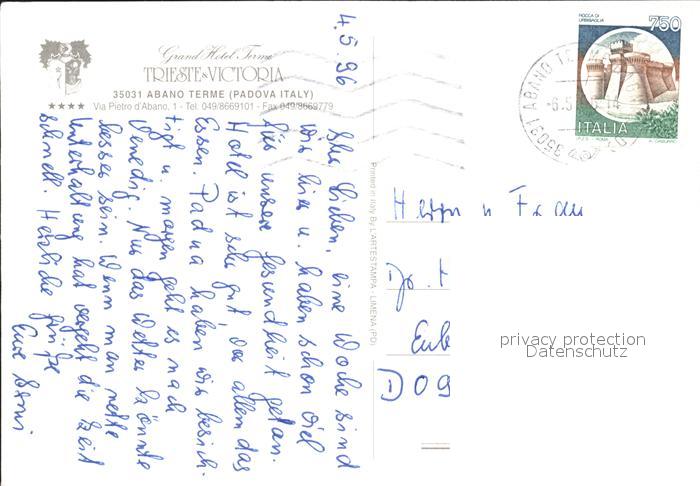 Grand Hotel Terme
TRIESTE & VICTORIA
35031 ABANO TERME (PADOVA ITALY)
★★★★ Via Pietro d'Abano, 1 - Tel. 049/8669101 - Fax 049/8669779
4.5.96
Ihr Lieben, eine Woche sind
wir hier u. haben schon viel
für unsere Gesundheit getan.
Hotel ist sehr gut, vor allem das
Essen. Padua haben wir besich-
tigt u. morgen geht es nach
Venedig. Nur das Wetter könnte
besser sein. Wenn man nette
Unterhaltung hat vergeht die Zeit
schnell. Herzliche Grüße
Eure
Printed in Italy By L'ARTESTAMPA - LIMENA (PD)
ROCCA DI
URBISAGLIA
750
ITALIA
35031 ABANO
-6.5
14
Herrn u Frau
Eub
D 09
privacy protection
Datenschutz